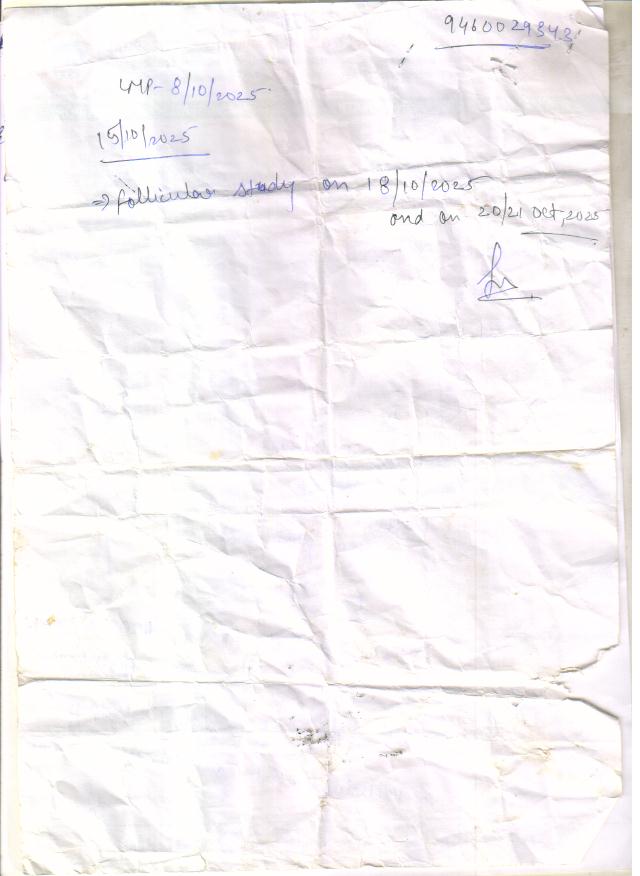 9460029343
LMP- 8/10/2025
15/10/2025
⇒ follicular study on 18/10/2025
and on 20/21 Oct, 2025